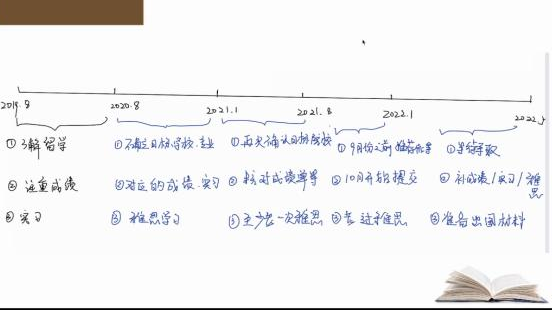 2019.9 2020.8 2021.1 2021.8 2022.1 2022.
① 了解留学 ① 确定目标学校、专业 ① 再次确认目标院校 ① 9月份之前 推荐信等 ① 等待录取
② 注重成绩 ② 对应的成绩、实习 ② 核对成绩单等 ② 10月开始提交 ② 补成绩/实习/雅思
③ 实习 ③ 雅思学习 ③ 至少考一次雅思 ③ 考过雅思 ③ 准备出国材料